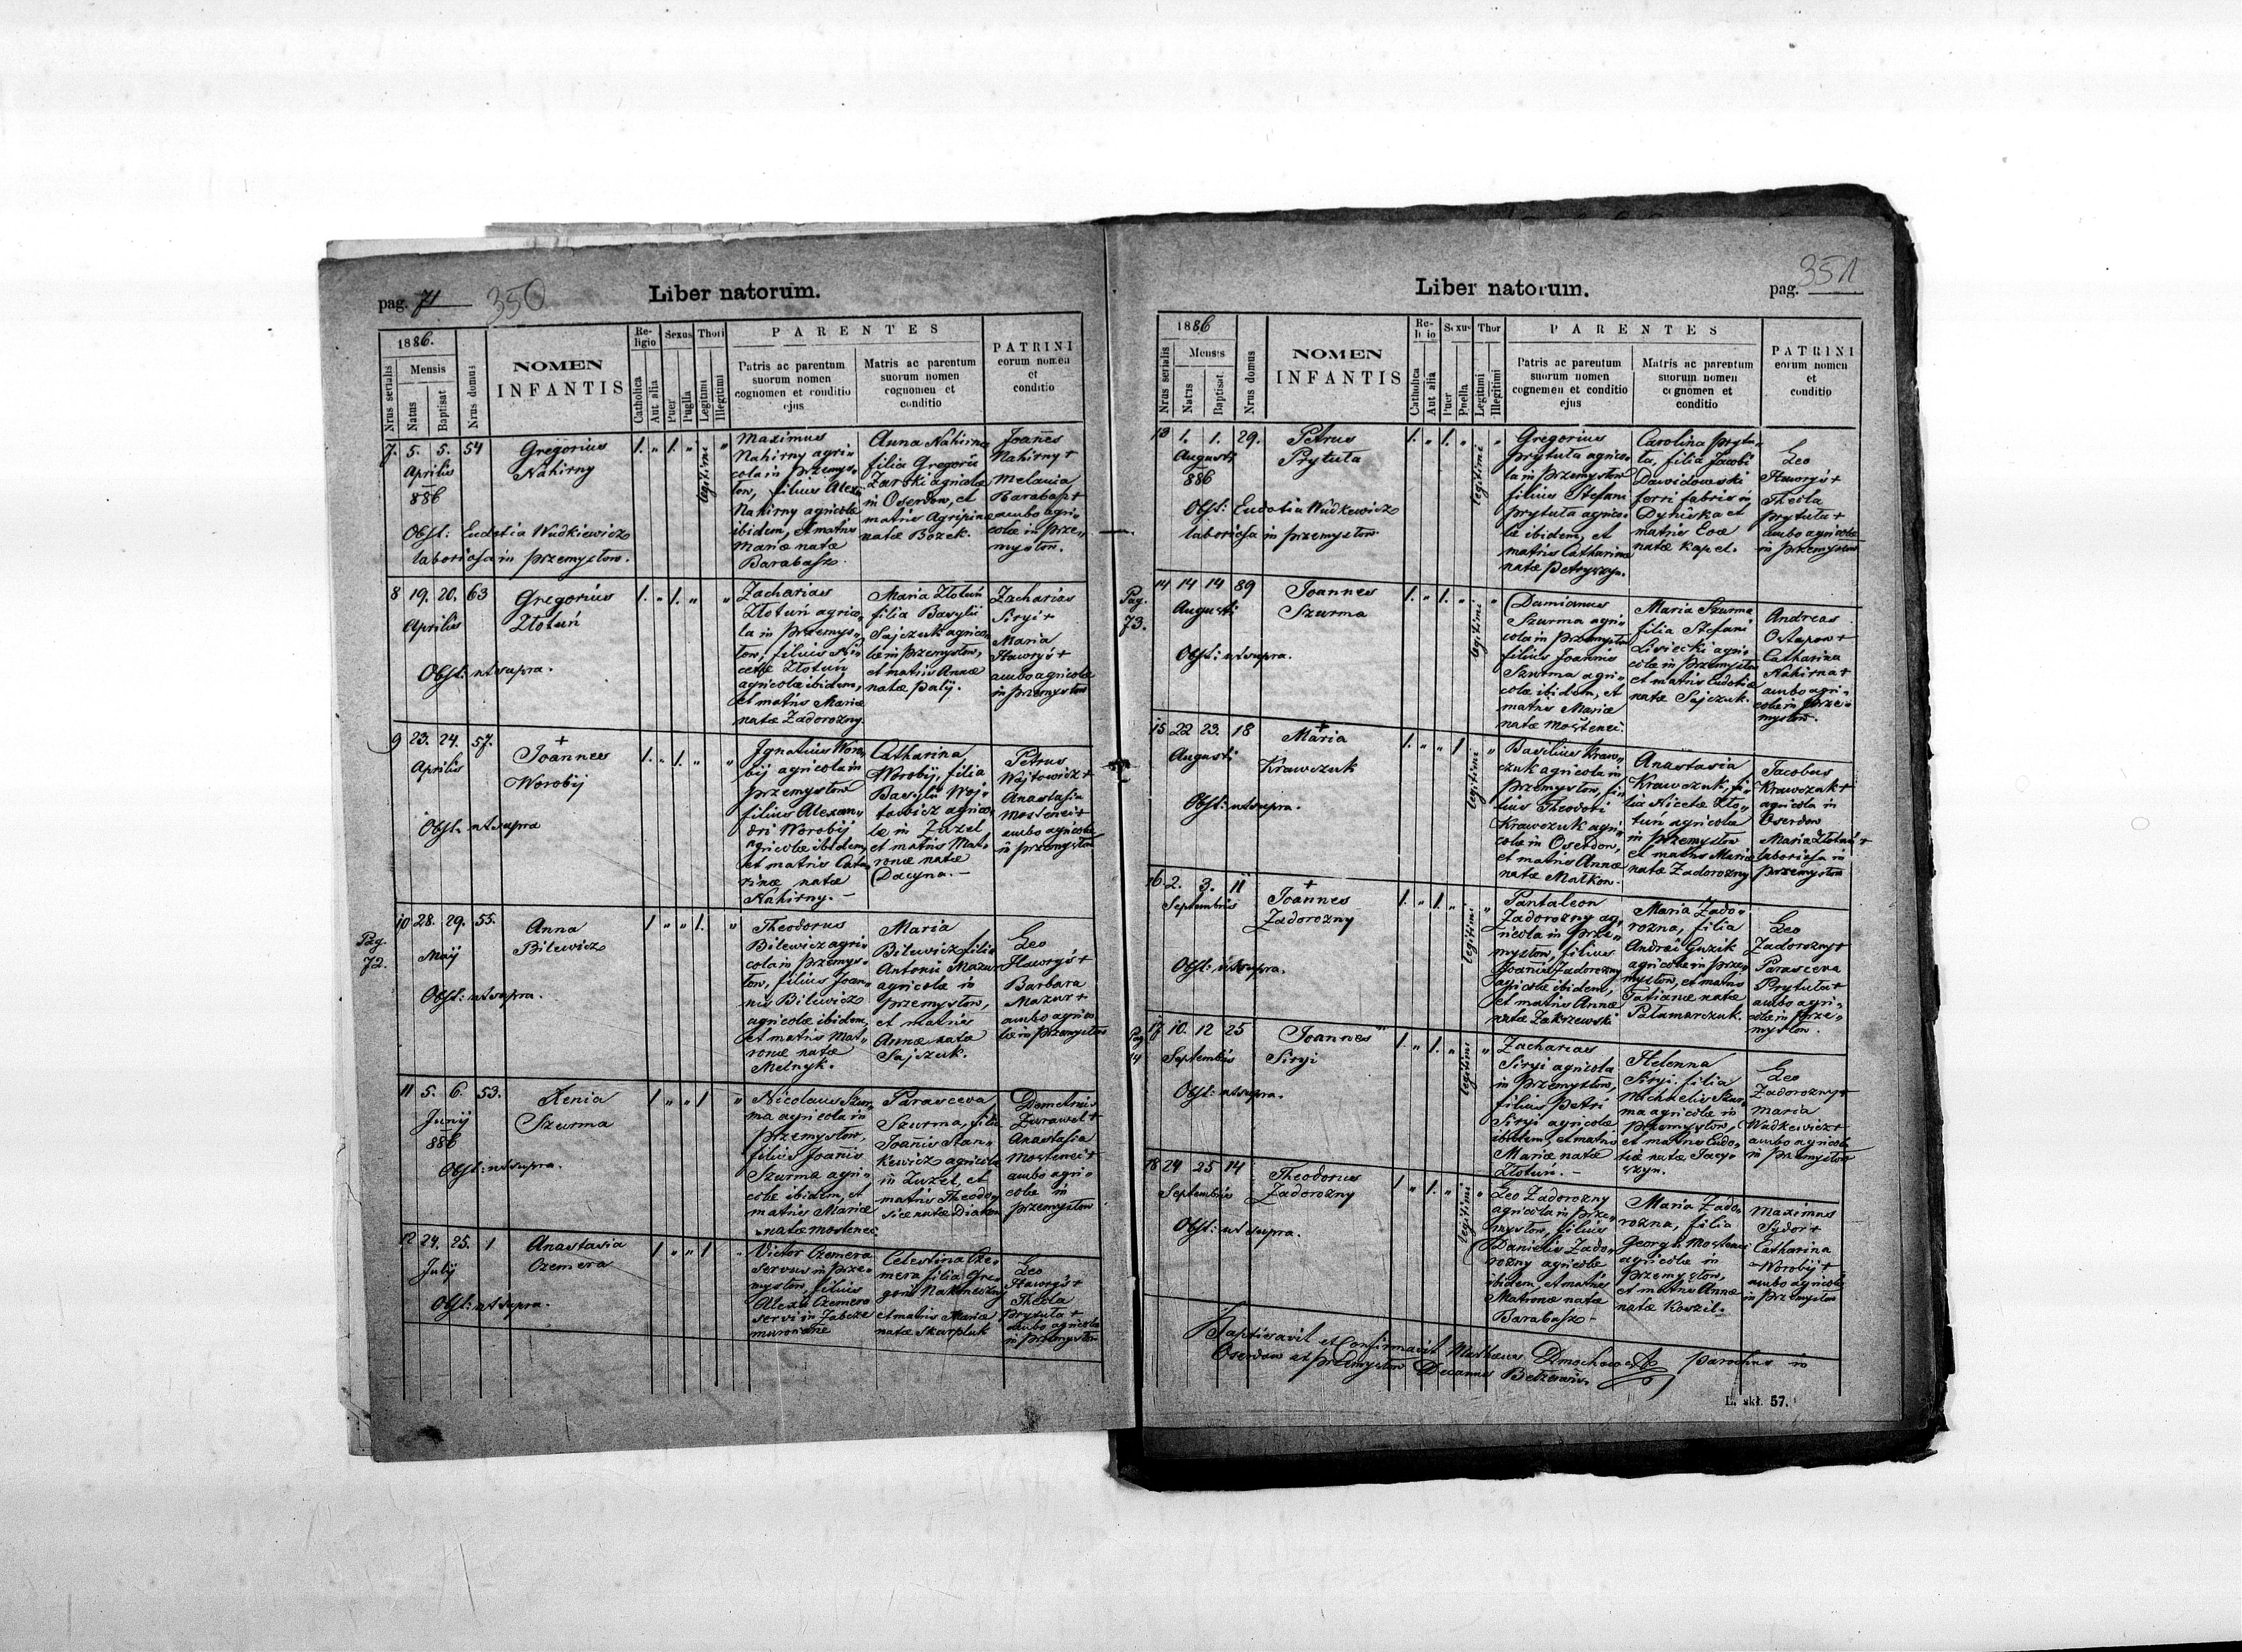 pag. 71 350
Liber natorum.
1886.
Nrus serialis
Mensis
Natus
Baptisat
Nrus domus
NOMEN
INFANTIS
Re-
ligio
Catholica
Aut alia
Sexus
Puer
Puella
Thori
Legitimi
Illegitimi
PARENTES
Patris ac parentum
suorum nomen
cognomen et conditio
ejus
Matris ac parentum
suorum nomen
cognomen et
conditio
PATRINI
eorum nomen
et
conditio
7. 5. 5. 54
Aprilis
886
Gregorius
Nahirny
Obst: Eudotia Wudkiewicz
laboriosa in Przemysłow.
1. " 1. " legitimi "
Maximus
Nahirny agri-
cola in Przemys-
łow, filius Alexii
Nahirny agricolæ
ibidem, et matris
Mariæ natæ
Barabasz.
Anna Nahirna
filia Gregorii
Żarski agricolæ
in Oserdow, et
matris Agripinæ
natæ Bozek.
Joannes
Nahirny +
Melania
Barabasz +
ambo agri-
colæ in Prze-
mysłow.
8 19. 20. 63
Aprilis
Gregorius
Złotuń
Obst: ut supra.
1. " 1. " "
Zacharias
Złotuń agrico-
la in Przemys-
łow, filius Ni-
cetæ Złotuń
agricolæ ibidem,
et matris Mariæ
natæ Zadorozny.
Maria Złotuń
filia Basylii
Sajczuk agrico-
læ in Przemysłow,
et matris Annæ
natæ Palij.
Zacharias
Siryi +
Maria
Hawryś +
ambo agricolæ
in Przemysłow
9 23. 24. 57.
Aprilis
+
Joannes
Worobij
Obst. ut supra
1. " 1. " "
Ignatius Woro-
bij agricola in
Przemysłow
filius Alexan-
dri Worobij
agricolæ ibidem,
et matris Cata-
rinæ natæ
Nahirny.-
Catharina
Worobij, filia
Basylii Woj-
towicz agrico-
læ in Żużel
et matris Mat-
ronæ natæ
Dacyna.-
Petrus
Wojtowicz +
Anastasia
Mostenci +
ambo agricolæ
in Przemysłow
Pag.
72.
10 28. 29. 55.
Maij
Anna
Bilewicz
Obst: ut supra.
1 " " 1. "
Theodorus
Bilewicz agri-
cola in Przemys-
łow, filius Joan-
nis Bilewicz
agricolæ ibidem,
et matris Mat-
ronæ natæ
Melnyk.
Maria
Bilewicz filia
Antonii Mazur
agricolæ in
Przemysłow,
et matris
Annæ natæ
Sajczuk.
Leo
Hawryś +
Barbara
Mazur +
ambo agrico-
læ in Przemysłow
11 5. 6. 53.
Junij
886
Xenia
Szurma
Obst: ut supra.
1 " " 1 "
Nicolaus Szur-
ma agricola in
Przemysłow,
filius Joannis
Szurma agri-
colæ ibidem, et
matris Mariæ
natæ Mostenci
Parasceva
Szurma, filia
Joannis Stan-
kewicz agricolæ
in Żużel, et
matris Theodo-
siæ natæ Diakon
Demetrius
Żurawel +
Anastasia
Mostenci +
ambo agri-
colæ in
Przemysłow
12 24. 25. 1
Julij
Anastasia
Czemera
Obst: ut supra.
1 " " 1 "
Victor Czemera
servus in Prze-
mysłow, filius
Alexii Czemera
servi in Zabcze
murowane
Celestina Cze-
mera filia Gre-
gorii Nakonieczny
et matris Mariæ
natæ Skarpluk
Leo
Hawryś +
Thecla
Prytuła +
ambo agricolæ
in Przemysłow
351
Liber natorum.
pag.
1886
Nrus serialis
Mensis
Natus
Baptisat.
Nrus domus
NOMEN
INFANTIS
Re-
li io
Catholica
Aut alia
Sexus
Puer
Puella
Thor
Legitimi
Illegitimi
PARENTES
Patris ac parentum
suorum nomen
cognomen et conditio
ejus
Matris ac parentum
suorum nomen
cognomen et
conditio
PATRINI
eorum nomen
et
conditio
13 1. 1. 29.
Augusti
886
Petrus
Prytuła
Obst: Eudotia Wudkewicz
laboriosa in Przemysłow
1. " 1. " legitimi "
Gregorius
Prytuła agrico-
la in Przemysłow
filius Stefani
Prytuła agrico-
læ ibidem, et
matris Catharinæ
natæ Petryszyn.
Carolina Prytu-
ła, filia Jacobi
Dawidowski
ferri fabris in
Dyniska et
matris Evæ
natæ Kapel.
Leo
Hawryś +
Thecla
Prytuła +
ambo agricolæ
in Przemysłow
Pag.
73.
14 14 14 89
Augusti
Joannes
Szurma
Obst: ut supra.
1. " 1. " legitimi "
Damianus
Szurma agri-
cola in Przemysłow
filius Joannis
Szurma agri-
colæ ibidem, et
matris Mariæ
natæ Mostenci.
Maria Szurma
filia Stefani
Lisiecki agri-
colæ in Przemysłow
et matris Eudotiæ
natæ Sajczuk.
Andreas
Ostapow +
Catharina
Nahirna +
ambo agri-
colæ in Prze-
mysłow.
15 22 23. 18
Augusti
+
Maria
Krawczuk
Obst: ut supra.
1. " " 1 legitimi "
Basilius Kraw-
czuk agricola in
Przemysłow, fi-
lius Theodori
Krawczuk agri-
colæ in Oserdow,
et matris Annæ
natæ Małkow.
Anastasia
Krawczuk, fi-
lia Nicetæ Zło-
tuń agricolæ
in Przemysłow
et matris Mariæ
natæ Zadorozny
Jacobus
Krawczuk +
agricola in
Oserdow
Maria Złotuń +
laboriosa in
Przemysłow
16 2. 3. 11
Septembris
+
Joannes
Zadorozny
Obst: ut supra.
1. " 1. " legitimi "
Pantaleon
Zadorozny ag-
ricola in Prze-
mysłow, filius
Joannis Zadorozny
agricolæ ibidem,
et matris Annæ
natæ Zakrzewski
Maria Zado-
rozna, filia
Andrei Guzik
agricolæ in Prze-
mysłow, et matris
Tatianæ natæ
Pałamarczuk.
Leo
Zadorozny +
Parasceva
Prytuła +
ambo agri-
colæ in Prze-
mysłow.
Pag
74
17 10. 12 25
Septembris
Joannes
Siryi
Obst: ut supra.
1. " 1. " legitimi "
Zacharias
Siryi agricola
in Przemysłow,
filius Petri
Siryi agricolæ
ibidem, et matris
Mariæ natæ
Złotuń.-
Helenna
Siryi, filia
Michaelis Szur-
ma agricolæ in
Przemysłow,
et matris Eudo-
tiæ natæ Jacy-
szyn.
Leo
Zadorozny +
Maria
Wudkewicz +
ambo agricolæ
in Przemysłow
18 24 25 14
Septembris
Theodorus
Zadorozny
Obst: ut supra.
1 " 1. " legitimi "
Leo Zadorozny
agricola in Prze-
mysłow, filius
Danielis Zado-
rozny agricolæ
ibidem, et matris
Matronæ natæ
Barabasz-
Maria Zado-
rozna, filia
Georgii Mostenci
agricolæ in
Przemysłow,
et matris Annæ
natæ Koszil.
Maximus
Sydor +
Catharina
Worobij +
ambo agricolæ
in Przemysłow
Baptisavit et Confirmavit Mathæus Dmochowski parochus in
Oserdow et Przemysłow Decanus Bełzensis.
L. skł. 57.